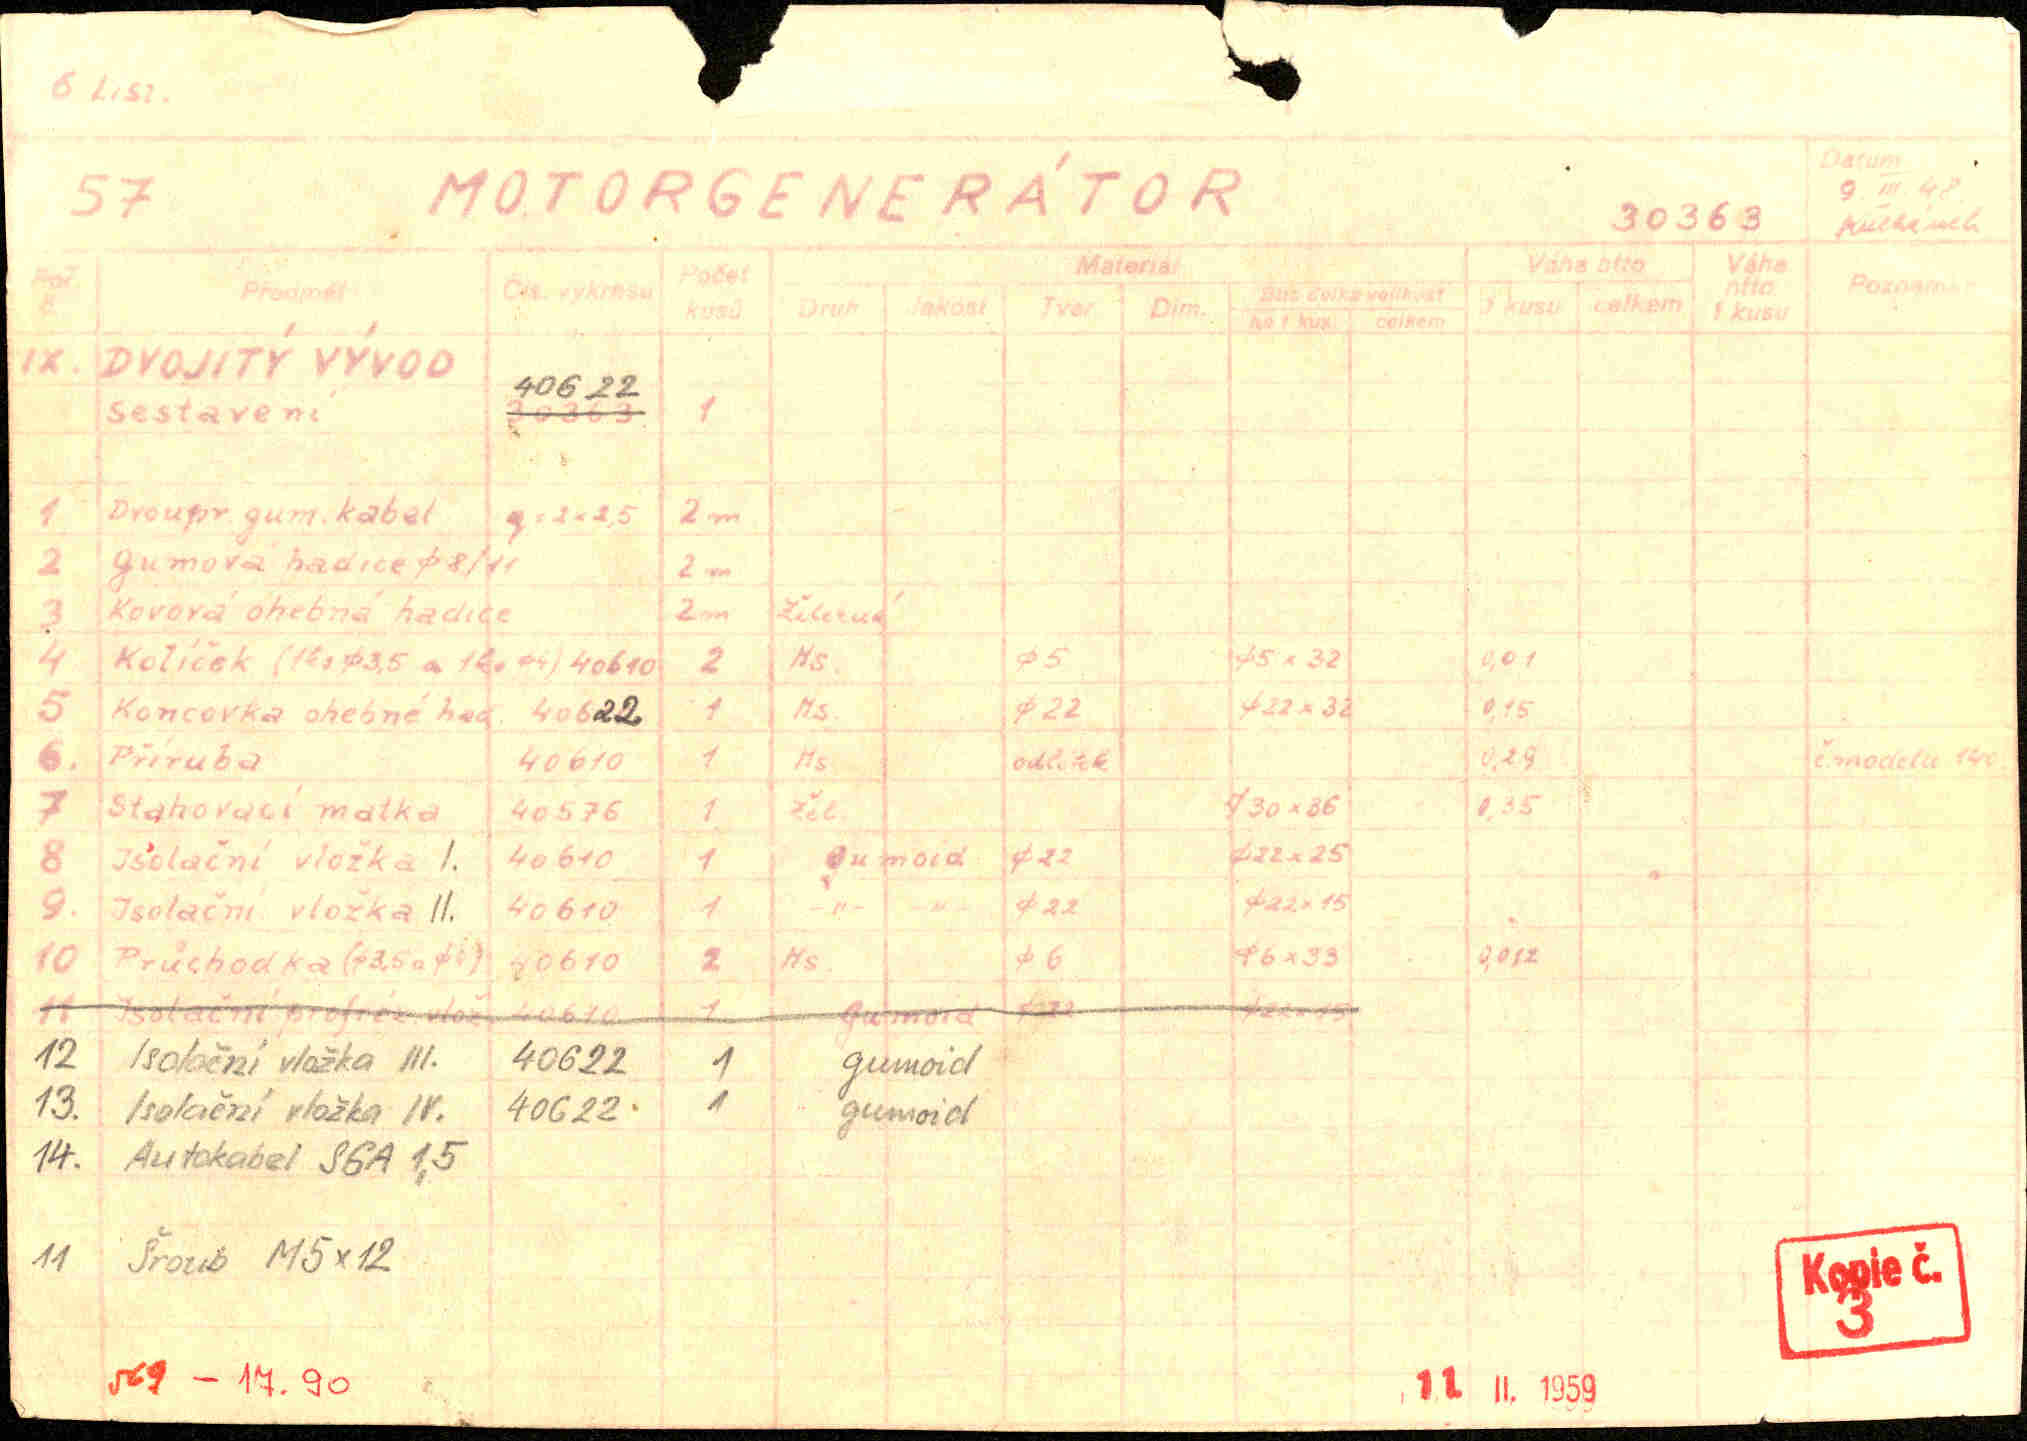 6 List.
57 MOTORGENERÁTOR 30363
Datum
9. III. 48
Poř. č. Předmět Čís. výkresu Počet kusů Materiál Váha btto Váha ntto 1 kusu Poznámka
Druh Jakost Tvar Dim. celková velikost 1 kusu celkem
na 1 kus celkem
IX. DVOJITÝ VÝVOD
40622
sestavení 30363 1
1 Dvoupr. gum. kabel q=2×2,5 2m
2 Gumová hadice φ8/11 2m
3 Kovová ohebná hadice 2m železná
4 Kolíček (1ks φ3,5 a 1ks φ4) 40610 2 Ms. φ5 φ5×32 0,01
5 Koncovka ohebné had. 40622 1 Ms. φ22 φ22×32 0,15
6. Příruba 40610 1 Ms odlitek 0,29 č. modelu 140
7 Stahovací matka 40576 1 žel. φ30×36 0,35
8 Isolační vložka I. 40610 1 gumoid φ22 φ22×25
9. Isolační vložka II. 40610 1 -"- -"- φ22 φ22×15
10 Průchodka (φ3,5 a φ4) 40610 2 Ms. φ6 φ6×33 0,012
11 Isolační profréz. vlož. 40610 1 Gumoid φ22 φ22×15
12 Isolační vložka III. 40622 1 gumoid
13. Isolační vložka IV. 40622 1 gumoid
14. Autokabel SGA 1,5
11 Šroub M5×12
Kopie č.
3
– 17.90
11 II. 1959